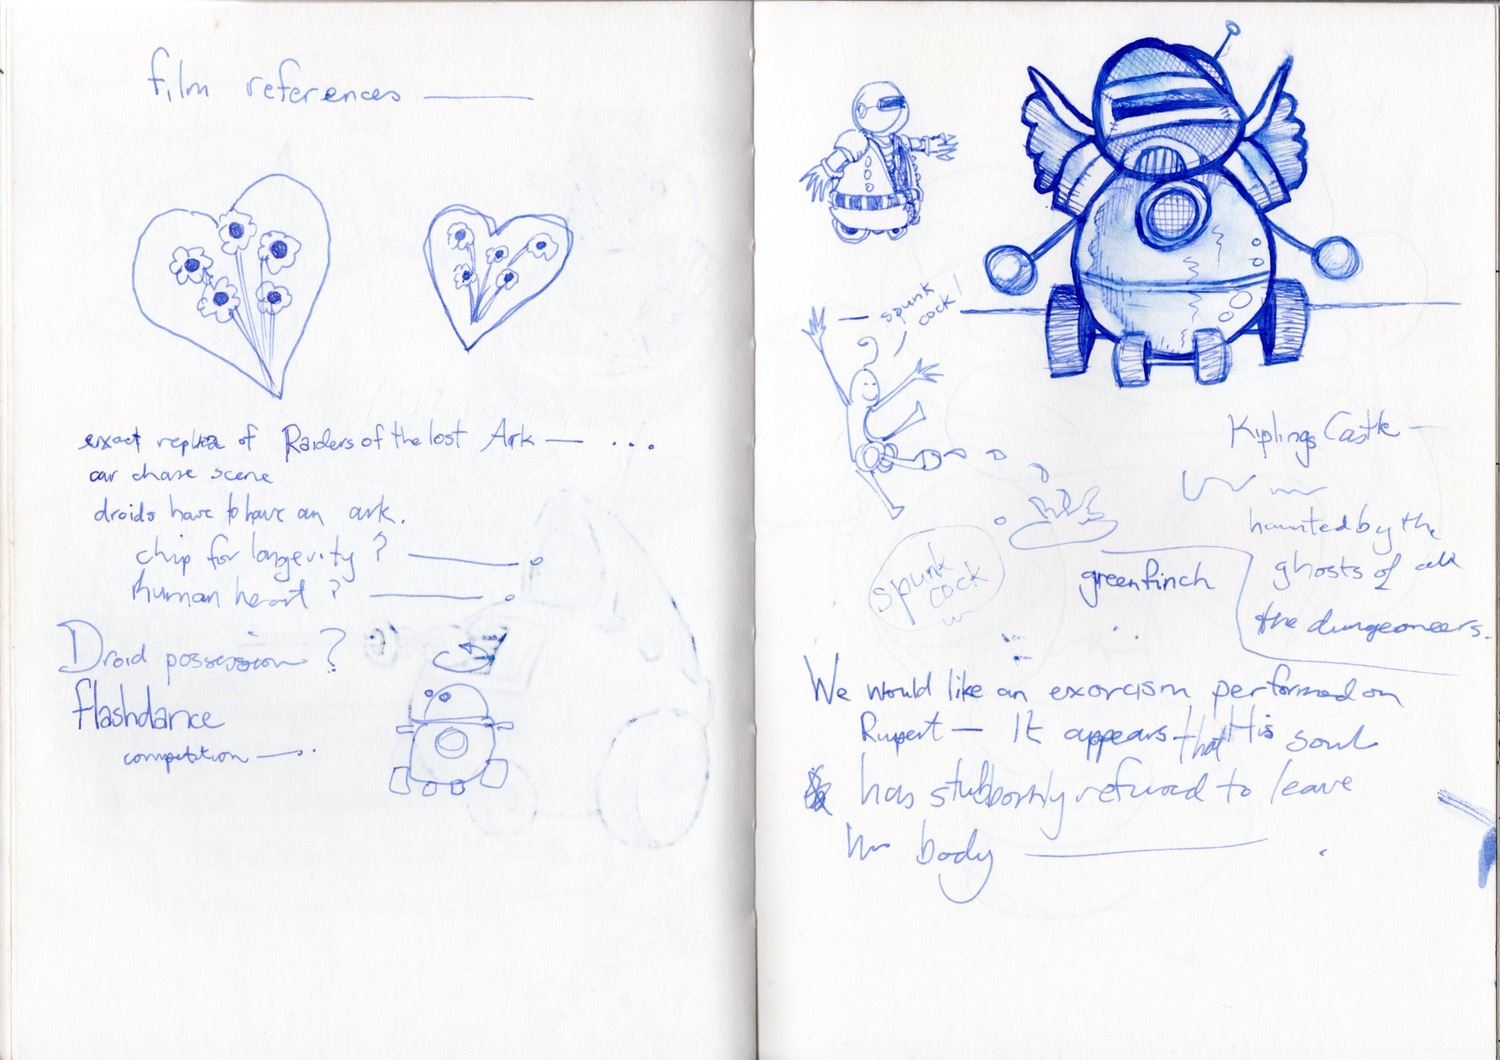 film references
exact replica of Raiders of the lost Ark — ...
car chase scene
droids have to have an ark.
chip for longevity ?
human heart ?
Droid possession ?
flashdance
competition
spunk
cock!
Kiplings Castle —
haunted by the
ghosts of all
the dungeoneers.
spunk
cock
greenfinch
We would like an exorcism performed on
Rupert — It appears that His soul
has stubbornly refused to leave
his body